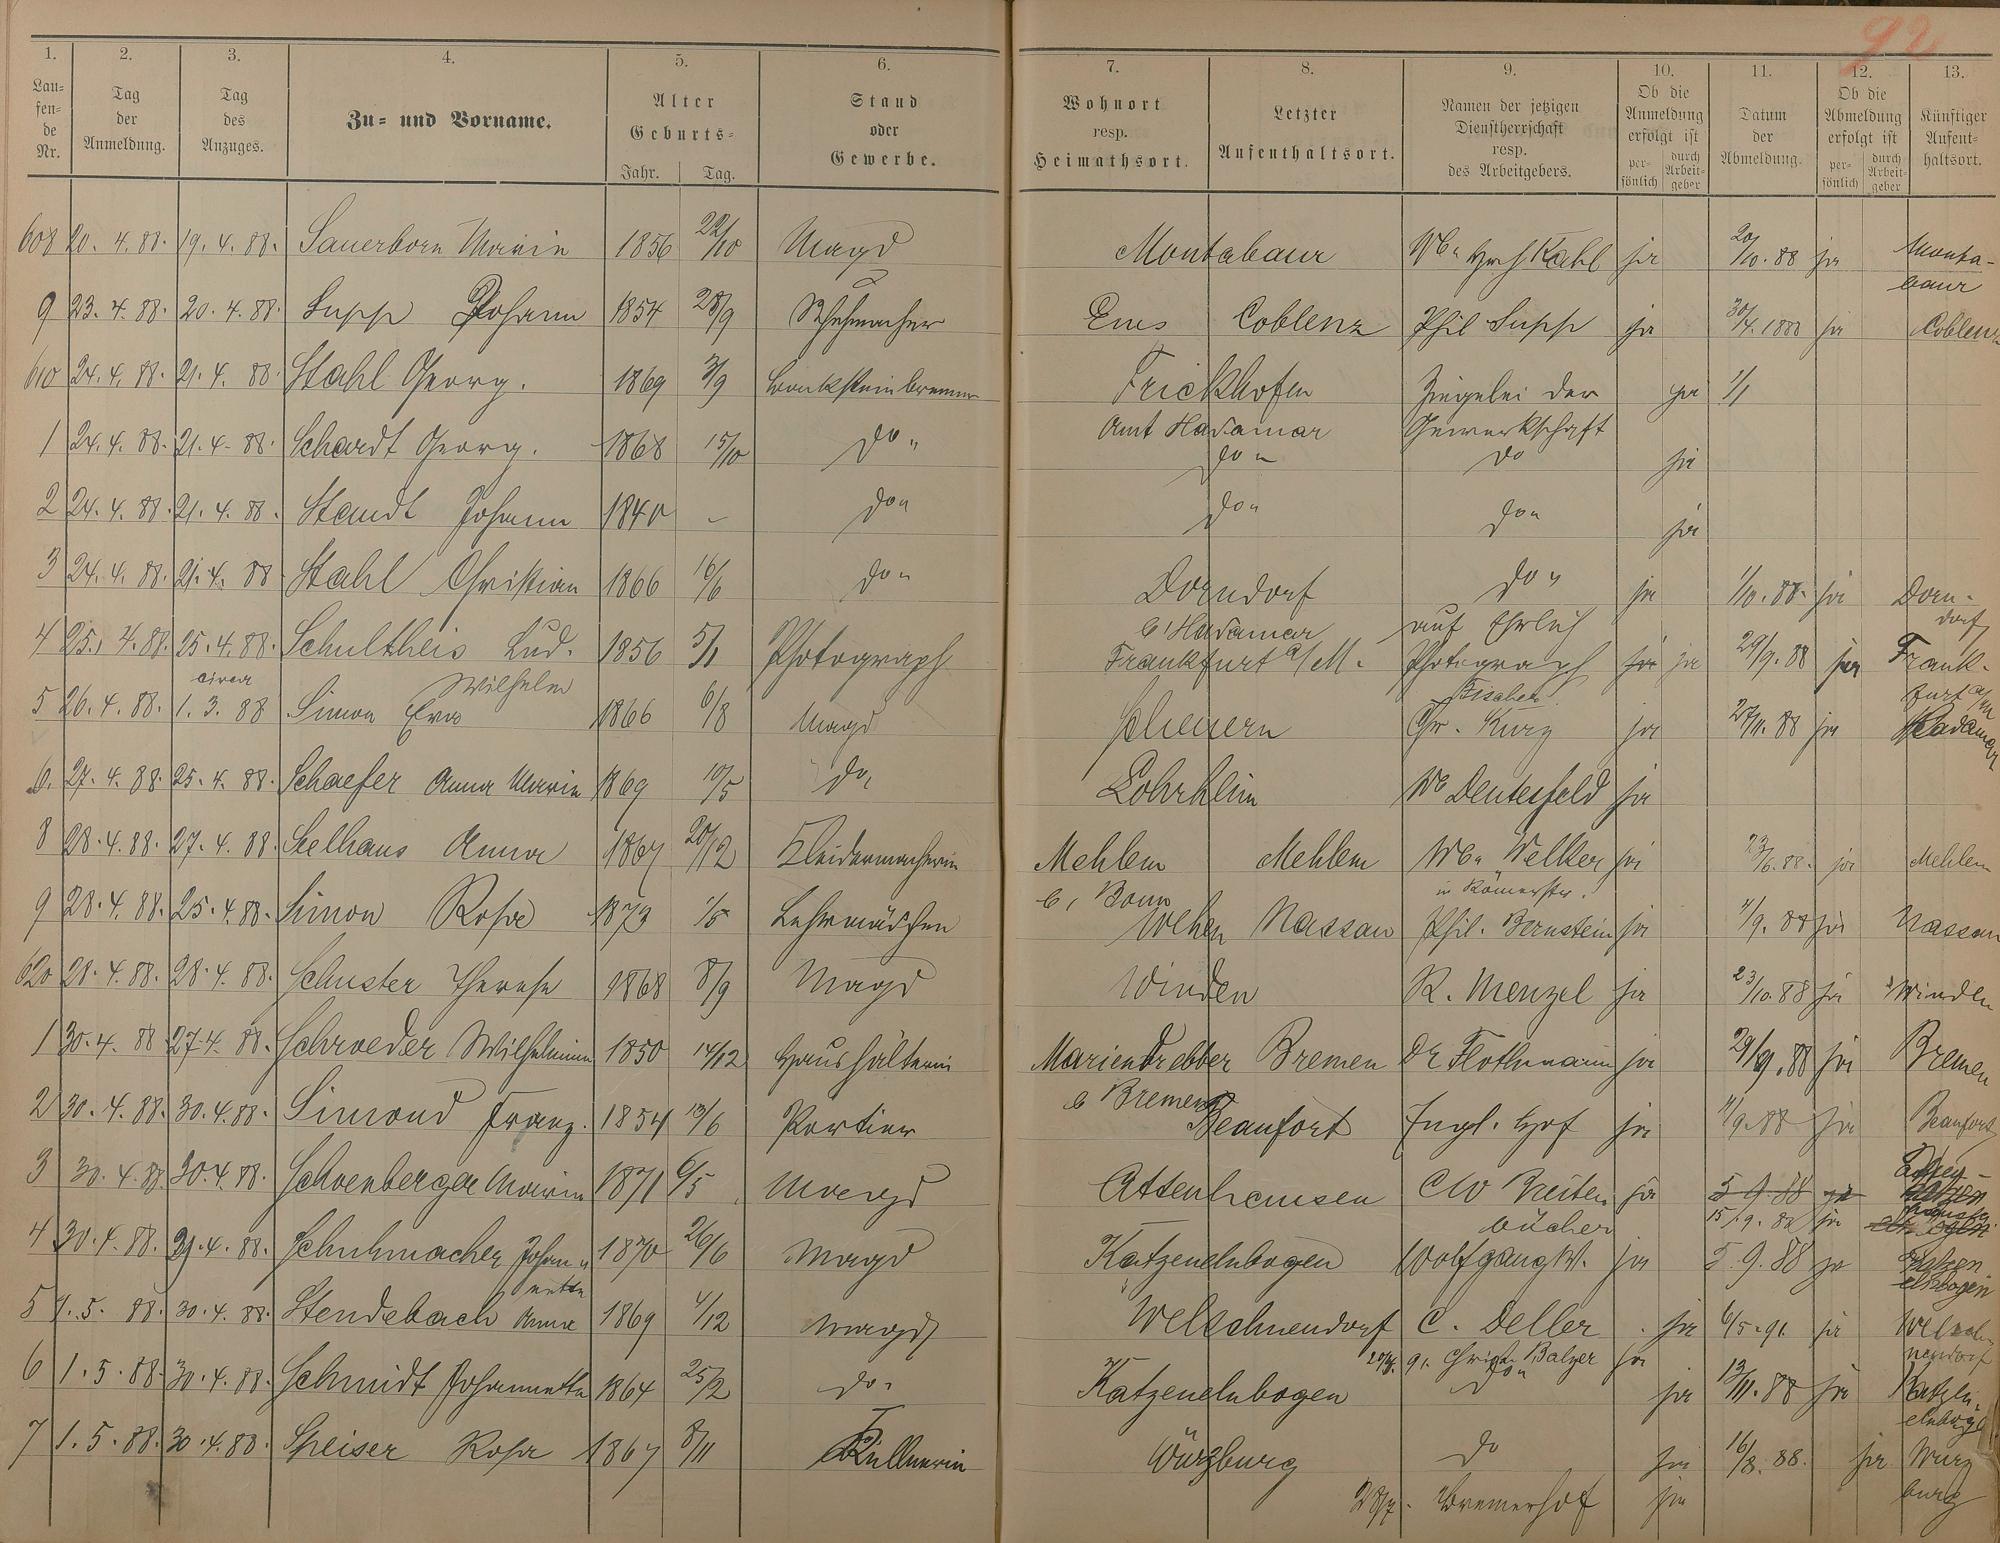 92
1. 2. 3. 4. 5. 6. 7. 8. 9. 10. 11. 12. 13.
Lau=
fen=
de
Nr.
Tag
der
Anmeldung.
Tag
des
Anzuges.
Zu= und Vorname.
Alter
Geburts=
Jahr. Tag.
Stand
oder
Gewerbe.
Wohnort
resp.
Heimathsort.
Letzter
Aufenthaltsort.
Namen der jetzigen
Dienstherrschaft
resp.
des Arbeitgebers.
Ob die
Anmeldung
erfolgt ist
per=
sönlich
durch
Arbeit=
geber
Datum
der
Abmeldung.
Ob die
Abmeldung
erfolgt ist
per=
sönlich
durch
Arbeit=
geber
Künftiger
Aufent=
haltsort.
608 20. 4. 88. 19. 4. 88. Sauerborn Marie 1856 22/10 Magd Montabaur Kahl ja 20/10. 88 ja Monta-
baur
9 23. 4. 88. 20. 4. 88. Supp Johann 1854 28/9 Schuhmacher Ems Coblenz Phil Supp ja 30/4. 1888 ja Coblenz
610 24. 4. 88. 21. 4. 88 Stahl Georg. 1869 3/9 Frickhofen Ziegelei der ja 1/1
Amt Hadamar Gewerkschaft
1 24. 4. 88. 21. 4. 88. Schardt Georg. 1868 15/10 do " do " do ja
2 24. 4. 88. 21. 4. 88. Staudt Johann 1840 - do " do " do " ja
3 24. 4. 88. 21. 4. 88 Stahl Christian 1866 16/6 do " Dorndorf do " ja 1/10. 88. ja Dorn-
dorf
b/ Hadamar auf Ehrlich
4 25. 4. 88. 25. 4. 88. Schultheis Lud. 1856 5/1 Photograph Frankfurt a/M. Photograph ja 29/9. 88 ja Frank-
furt a/M
Wilhelm Fischer
circa
5 26. 4. 88. 1. 3. 88 Simon Eva 1866 6/8 Magd Scheuern Chr. Kurz ja 27/11. 88 ja Hadamar
6. 27. 4. 88. 25. 4. 88. Schaefer Anna Marie 1869 10/5 do " Lohrheim Deutesfeld ja
8 28. 4. 88. 27. 4. 88 Stelhaus Anna 1867 20/12 Kleidermacherin Mehlem Mehlem Welker ja 23/6. 88. ja Mehlem
b/ Bonn in Römerstr.
9 28. 4. 88. 25. 4. 88. Simon Rosa 1873 1/5 Lehrmädchen Wehen Nassau Phil. Bernstein ja 1/9. 88 ja Nassau
620 28. 4. 88. 28. 4. 88. Schuster Therese 1868 8/9 Magd Winden R. Menzel ja 23/10. 88 ja Winden
1 30. 4. 88 27. 4. 88. Schroeder Wilhelmine 1850 14/12 Haushälterin Mariendrebber Bremen Dr Flothmann ja 29/9. 88 ja Bremen
b Bremen
2 30. 4. 88. 30. 4. 88. Simond Franz. 1854 13/6 Portier Beaufort Engl. Hof ja 11/9. 88 ja Beaufort
3 30. 4. 88. 30. 4. 88. Schoenberger Marie 1871 6/5 Magd Attenhausen C W Breiten ja 5 9. 88
bücher 15/9. 88 ja
4 30. 4. 88. 29. 4. 88. Schuhmacher Johan- 1870 26/6 Magd Katzenelnbogen Wolfgang W. ja 5. 9. 88 ja Katzen
elnbogen
nette
5 1. 5. 88. 30. 4. 88. Stendebach Anna 1869 4/12 Magd Welschnendorf C. Deller ja 6/5. 91 ja Welsch-
nendorf
91 Christ. Balzer ja
6 1. 5. 88. 30. 4. 88. Schmidt Johannette 1864 25/2 do " Katzenelnbogen do " ja 13/11. 88 ja Katzen-
elnboge
7 1. 5. 88. 30. 4. 88. Speiser Rosa 1867 8/11 Kellnerin Würzburg do ja 16/8. 88. ja Würz
burg
28/7. Bremerhof ja